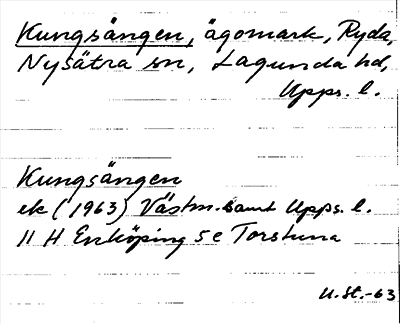 Kungsängen, ägomark, Ryda,
Nysätra sn, Lagunda hd,
Upps. l.
Kungsängen
ek (1963) Västm. samt Upps. l.
11 H Enköping 5 e Torstuna
U. St. -63